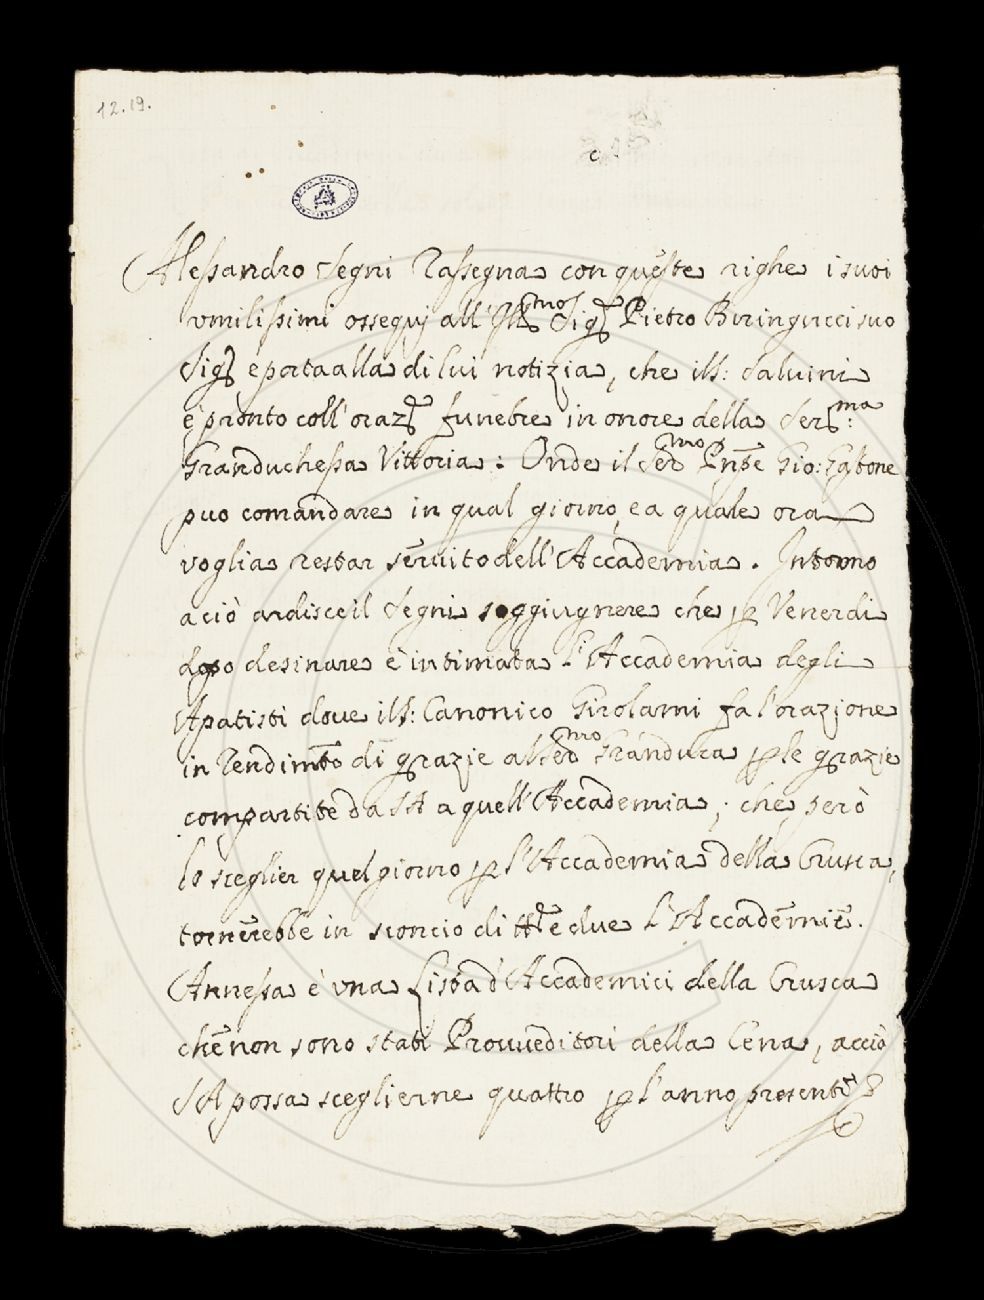 12.19.
c
Alessandro Segni Rassegna con queste righe i suoi
vmilissimi ossequj all' Ill.mo Sig.re Pietro Biringucci suo
Sig.re e porta alla di lui notizia, che il S: Saluini
è pronto coll' oraz.ne funebre in onore della Ser.ma:
Granduchessa Vittoria: Onde il Ser.mo Pnpe Gio: Gastone
puo comandare in qual giorno, e a quale ora
voglia restar seruito dell' Accademia. Intorno
a ciò ardisce il Segni soggiugnere che p Venerdi
dopo desinare è intimata l' Accademia degli
Apatisti doue il S: Canonico Girolami fa l' orazione
in Rendimto di grazie al Ser.mo Granduca p le grazie
compartite da SA a quell' Accademia; che però
lo sceglier quel giorno p l' Accademia della Crusca,
tornerebbe in sconcio di tt.e e due l' Accademie.
Annessa è vna Lista d' Accademici della Crusca
che non sono stati Prouueditori della Cena, acciò
SA possa sceglierne quattro p l' anno presente